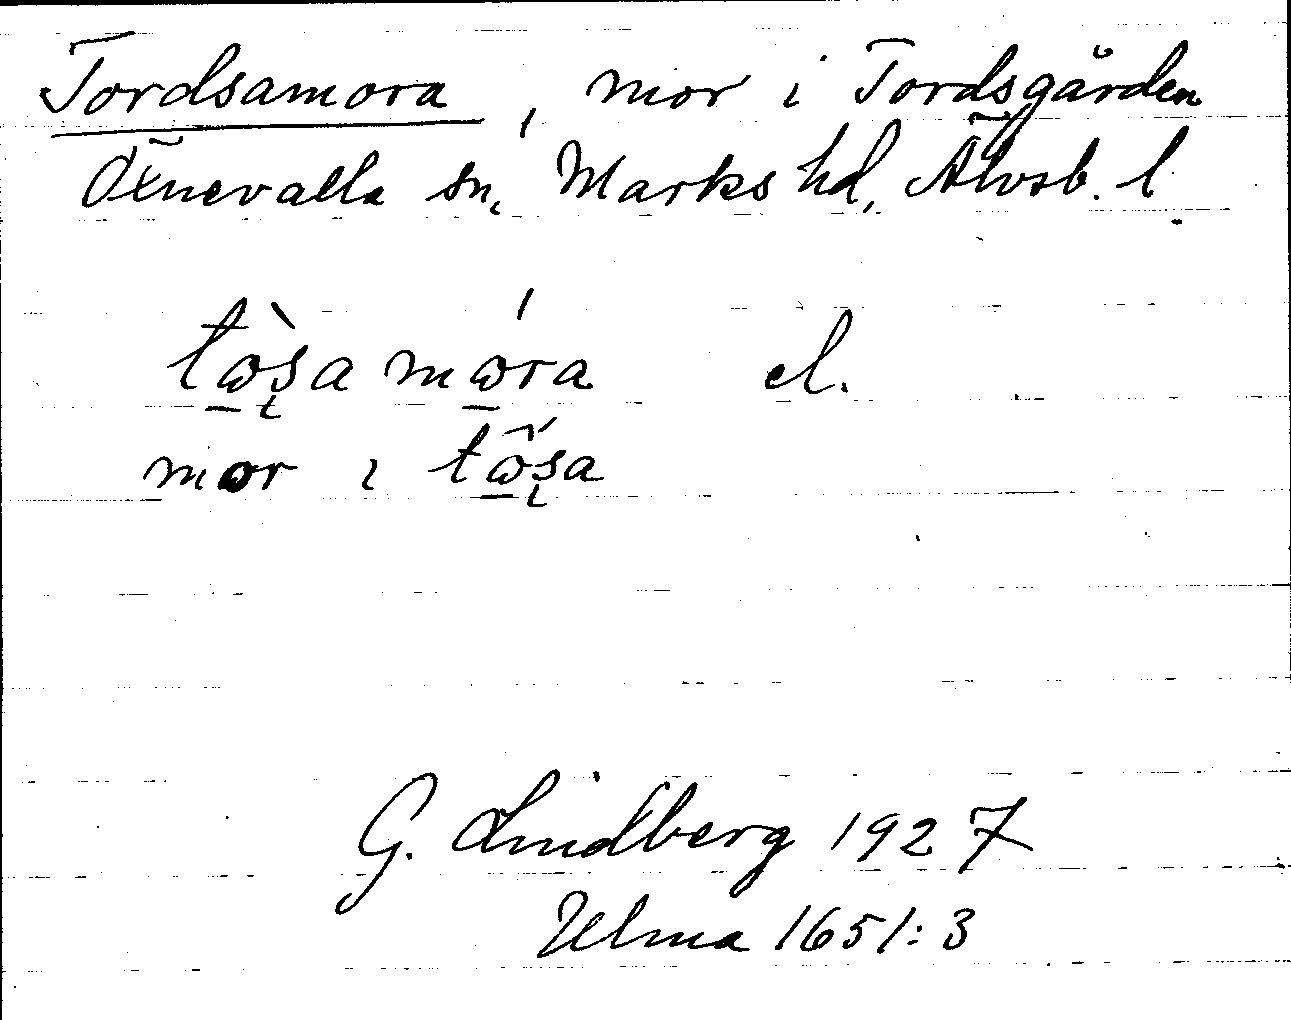 Tordsamora, mor i Tordsgården
Öxnevalla sn, Marks hd, Älvsb. l
tὼ̲ʂa mώ̲ra el.
mor ı tω̲̂́ʂa
G. Lindberg 1927
Ulma 1651:3